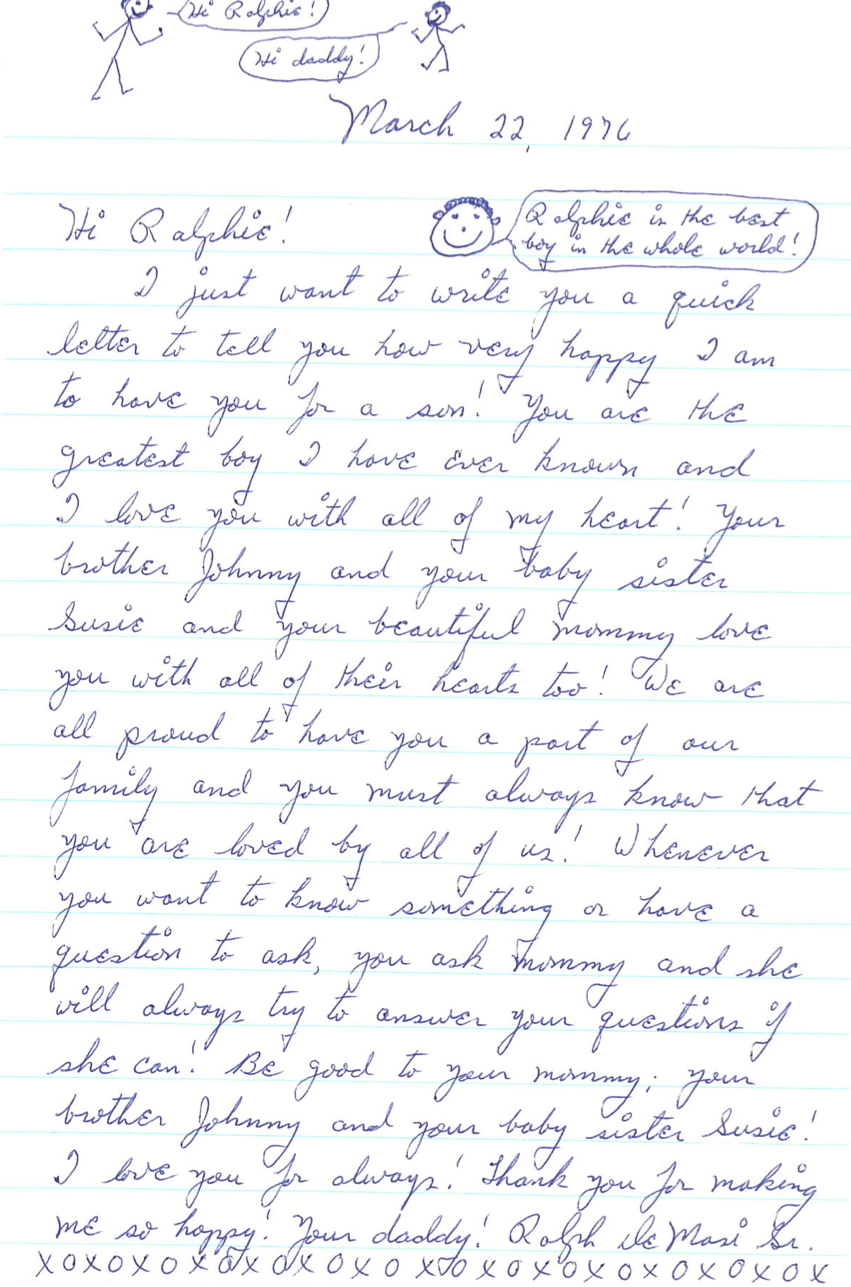 Hi Ralphie!
Hi daddy!
March 22, 1976
Hi Ralphie!
Ralphie is the best
boy in the whole world!
I just want to write you a quick
letter to tell you how very happy I am
to have you for a son! You are the
greatest boy I have ever known and
I love you with all of my heart! Your
brother Johnny and your baby sister
Susie and your beautiful mommy love
you with all of their hearts too! We are
all proud to have you a part of our
family and you must always know that
you are loved by all of us! Whenever
you want to know something or have a
question to ask, you ask mommy and she
will always try to answer your questions if
she can! Be good to your mommy, your
brother Johnny and your baby sister Susie!
I love you for always! Thank you for making
me so happy! Your daddy! Ralph De Masi Sr.
X O X O X O X O X O X O X O X O X O X O X O X O X O X O X